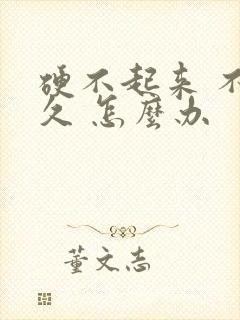 硬不起来 不
久 怎麽办
董文志